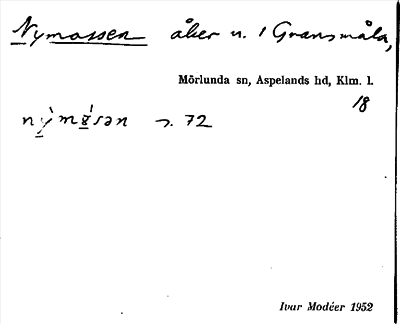 Nymossen åker u. 1 Gransmåla,
Mörlunda sn, Aspelands hd, Klm. l.
18
nỳmǫ́sən s. 72
Ivar Modéer 1952